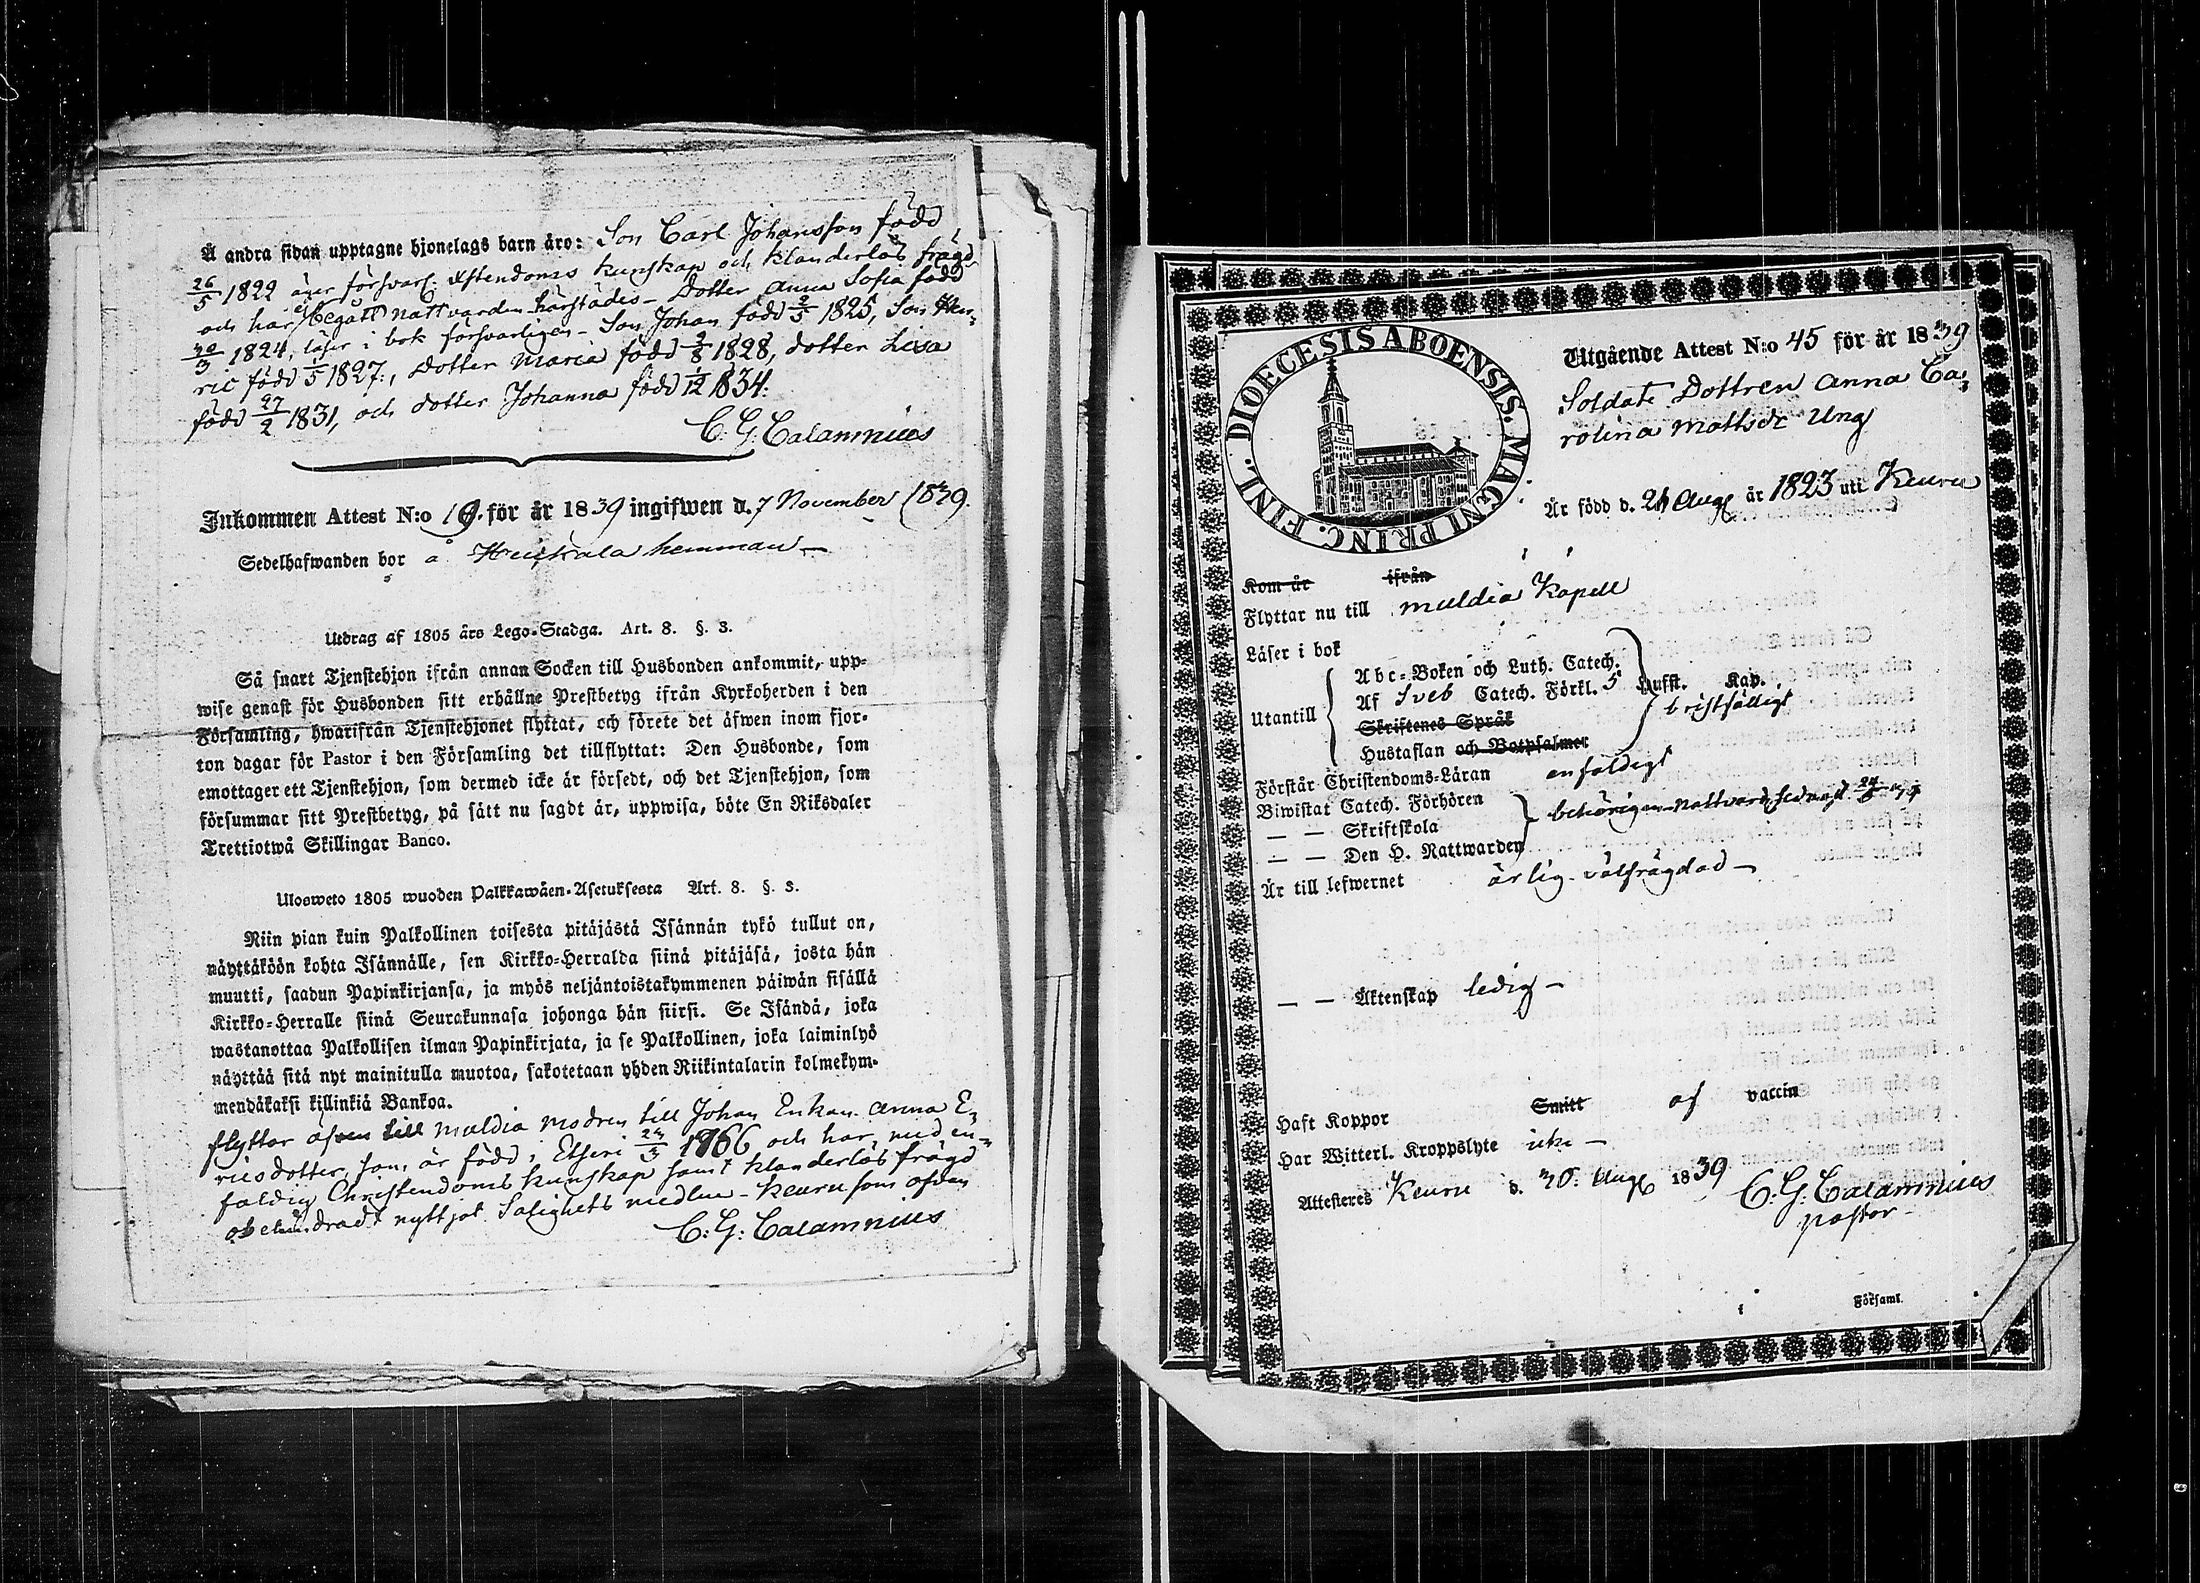 Å andra sidan upptagne hjonelags barn äro: Son Carl Johansson född
26/5 1822 äger försvarl. Xstendoms kunskap och klanderlös frägd
och har begått nattvarden härstädes – Dotter Anna Sofia född
30/3 1824, läser i bok försvarligen – Son Johan född 2/5 1825, Son Hen-
ric född 1/5 1827, Dotter Maria född 2/8 1828, dotter Lisa
född 27/2 1831, och dotter Johanna född 1/12 1834.
C. G. Calamnius
Inkommen Attest N:o 19. för år 1839 ingifwen d. 7 November 1839.
Sedelhafwanden bor å hemman –
Utdrag af 1805 års Lego-Stadga. Art. 8. §. 3.
Så snart Tjenstehjon ifrån annan Socken till Husbonden ankommit, upp-
wise genast för Husbonden sitt erhållne Prestbetyg ifrån Kyrkoherden i den
Församling, hwarifrån Tjenstehjonet flyttat, och förete det äfwen inom fjor-
ton dagar för Pastor i den Församling det tillflyttat: Den Husbonde, som
emottager ett Tjenstehjon, som dermed icke är försedt, och det Tjenstehjon, som
försummar sitt Prestbetyg, på sätt nu sagdt är, uppwisa, böte En Riksdaler
Trettiotwå Skillingar Banco.
Ulosweto 1805 wuoden Palkkawäen-Asetuksesta Art. 8. §. 3.
Niin pian kuin Palkollinen toisesta pitäjästä Isännän tykö tullut on,
näyttäköön kohta Isännälle, sen Kirkko-Herralda siinä pitäjäsä, josta hän
muutti, saadun Papinkirjansa, ja myös neljäntoistakymmenen päiwän sisällä
Kirkko-Herralle siinä Seurakunnasa johonga hän siirsi. Se Isändä, joka
wastanottaa Palkollisen ilman Papinkirjata, ja se Palkollinen, joka laiminlyö
näyttää sitä nyt mainitulla muotoa, sakotetaan yhden Riikintalarin kolmekym-
mendäkaksi killinkiä Bankoa.
Flyttar äfven till Muldia modren till Johan Enkan Anna E-
ricsdotter, som är född i Etseri 23/3 1766 och har med en-
faldig Christendoms kunskap samt klanderlös frägd
obehindradt nyttjat Salighets medlen – Keuru som ofvan
C. G. Calamnius
DIOECESIS ABOENSIS. MAGNI PRINC. FINL.
Utgående Attest N:o 45 för år 1839
Soldats Dottren Anna Ca-
rolina Mattsdr Ung
Är född d. 21 Aug. år 1823 uti Keuru
Kom år ifrån
Flyttar nu till Muldia Kapell
Läser i bok
Utantill
Abc-Boken och Luth. Catech.
Af Sveb Catech. Förkl. 5 Hufst. Kap.
bristfälligt
Skriftenes Språk
Hustaflan och Botpsalmer
Förstår Christendoms-Läran enfaldigt
Biwistat Catech. Förhören
— — Skriftskola behörigen – nattvard. sednast
— — Den H. Nattwarden
Är till lefwernet ärlig. välfrägdad –
— — Äktenskap ledig –
Haft Koppor Smitt af vaccin
Har Witterl. Kroppslyte icke –
Attesteres Keuru d. 30. Aug. 1839
C. G. Calamnius
pastor –
Församl.